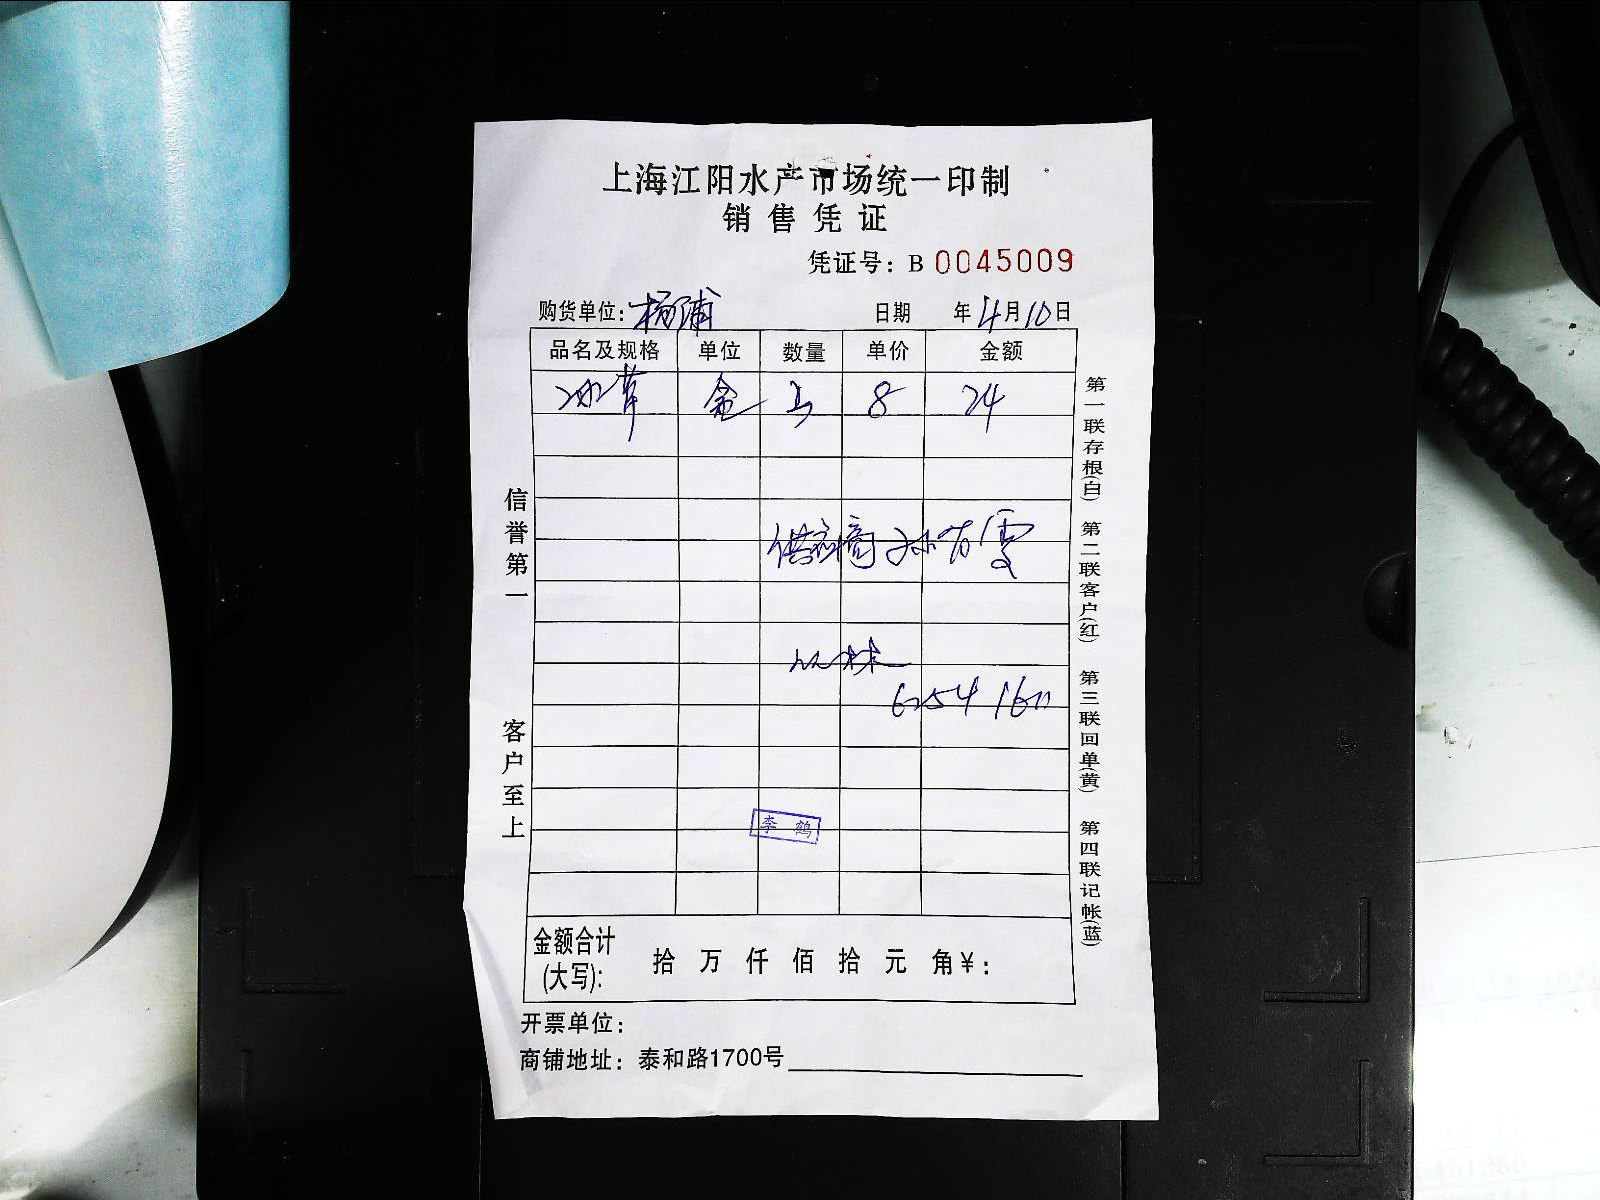 上海江阳水产市场统一印制
销售凭证
凭证号：B 0045009
购货单位：杨浦 日期 年4月10日
品名及规格 单位 数量 单价 金额
冰草 盒 3 8 24
供应商 孙方雯
李鹤
金额合计(大写)： 拾 万 仟 佰 拾 元 角 ¥：
开票单位：
商铺地址：泰和路1700号
信誉第一 客户至上
第一联存根(白) 第二联客户(红) 第三联回单(黄) 第四联记帐(蓝)